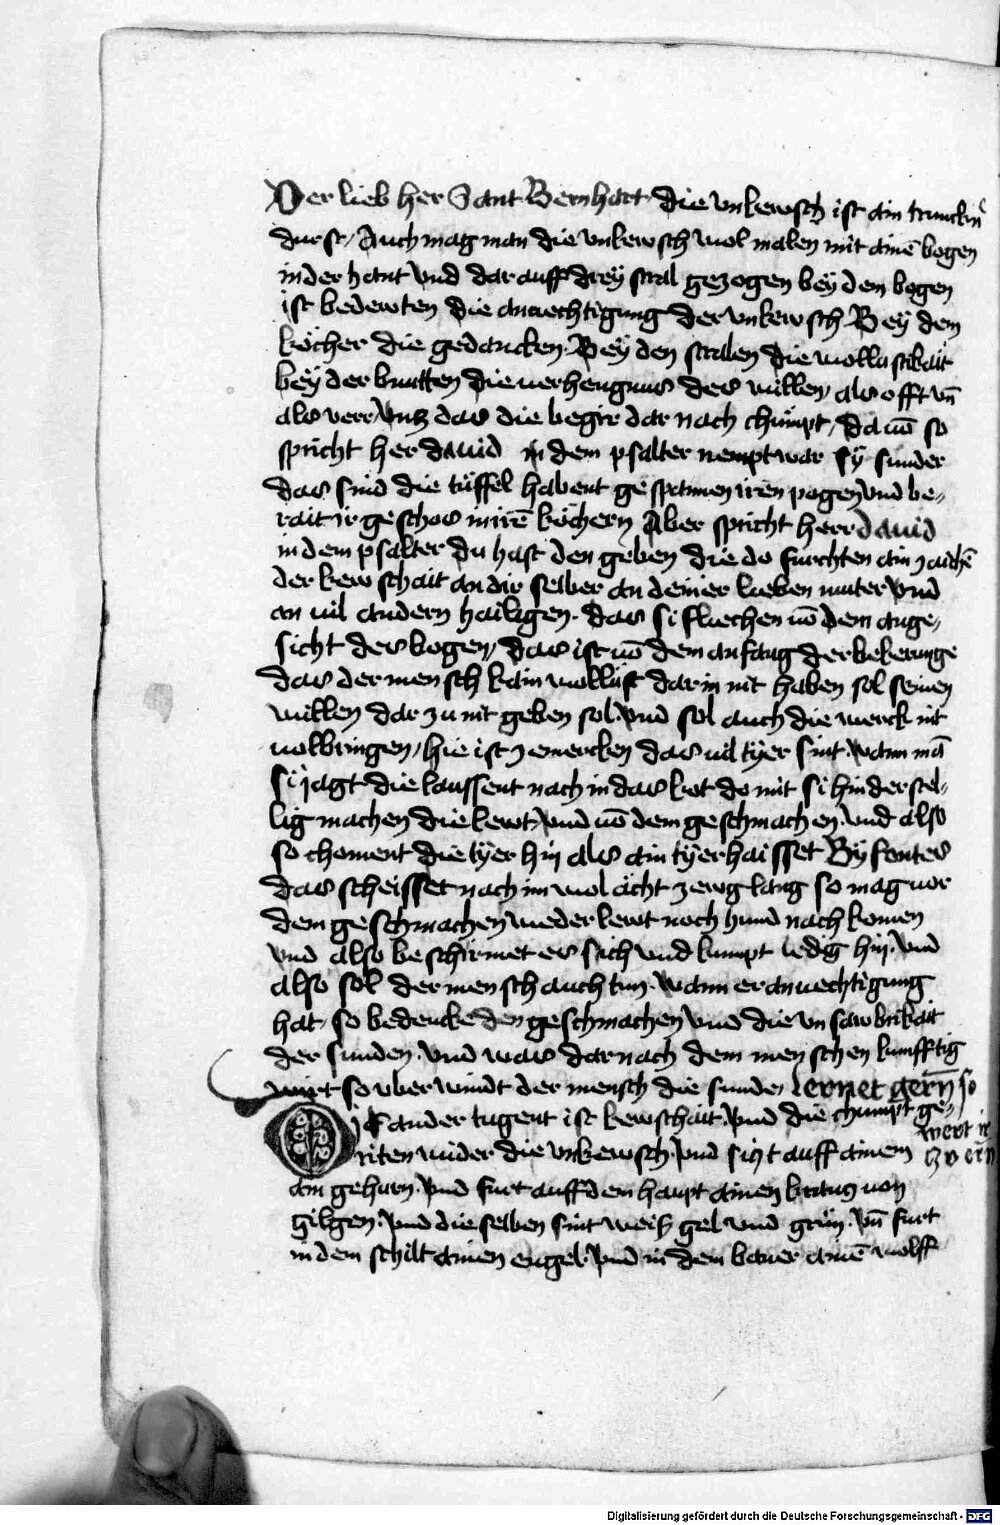 Der lieb her Sant Bernhart die vnkewsch ist ain trunckner
durst / Auch mag man die vnkewsch wol malen mit aine bogen
in der hant vnd dar auff drey stral gezogen bey dem bogen
ist bedewten die anuechtigung der vnkewsch Bey dem
köcher die gedancken. Bey den stralen die wollustikait
bey der die verhengnus des willen, als offt vn̄
als verr vntz das die begir dar nach chümpt, da uō so
spricht her dauid in dem psalter nempt war sy sunder
das sind die tüffel habent gespannen iren pogen vnd be„
rait ir geschos in irē köchern Aber spricht herr dauid
in dem psalter du hast den geben die do furchten ain zaichē
der kewschait an dir selber an deiner lieben muter vnd
an uil andern hailigen. das si fliechen uō dem ange„
sicht des bogen, das ist uō dem anfang der bekerunge
das der mensch kain wollüst dar in nit haben sol seinen
willen dar zu nit geben sol. vnd sol auch die werck nit
uolbringen, hie ist zemercken das uil tÿer sint. wann mā
si jagt die laussent nach in das kot do mit si hinderstel„
lig machen die lewt, vnd uō dem geschmachen, vnd also
so choment die tÿer hin als ain tÿer haisset Byfontes
das scheisset nach im wol ächt zewg lang so mag vor
dem geschmachen weder lewt noch hund nach komen
vnd also beschirmet es sich vnd kumpt ledig hin. vnd
also sol der mensch auch tun. wann er anuechtigung
hat, so bedencke den geschmachen vnd die vnsawbrikait
der sunden. vnd was dar nach dem menschen kunfftig
wirt so vberwindt der mensch die sunde, lernet gern so
Die ander tugent ist kewschait. vnd die chumpt ge„
wert ir
riten wider die vnkewsch. vnd sitzt auff ainem
ain gehurn. vnd furt auff dem haupt ainen krantz von
gilgen. vnd die selben sint weiß gel vnd grün. vn̄ furt
in dem schilt ainen engel. vnd in dem baner ainē wolff
Digitalisierung gefördert durch die Deutsche Forschungsgemeinschaft - DFG